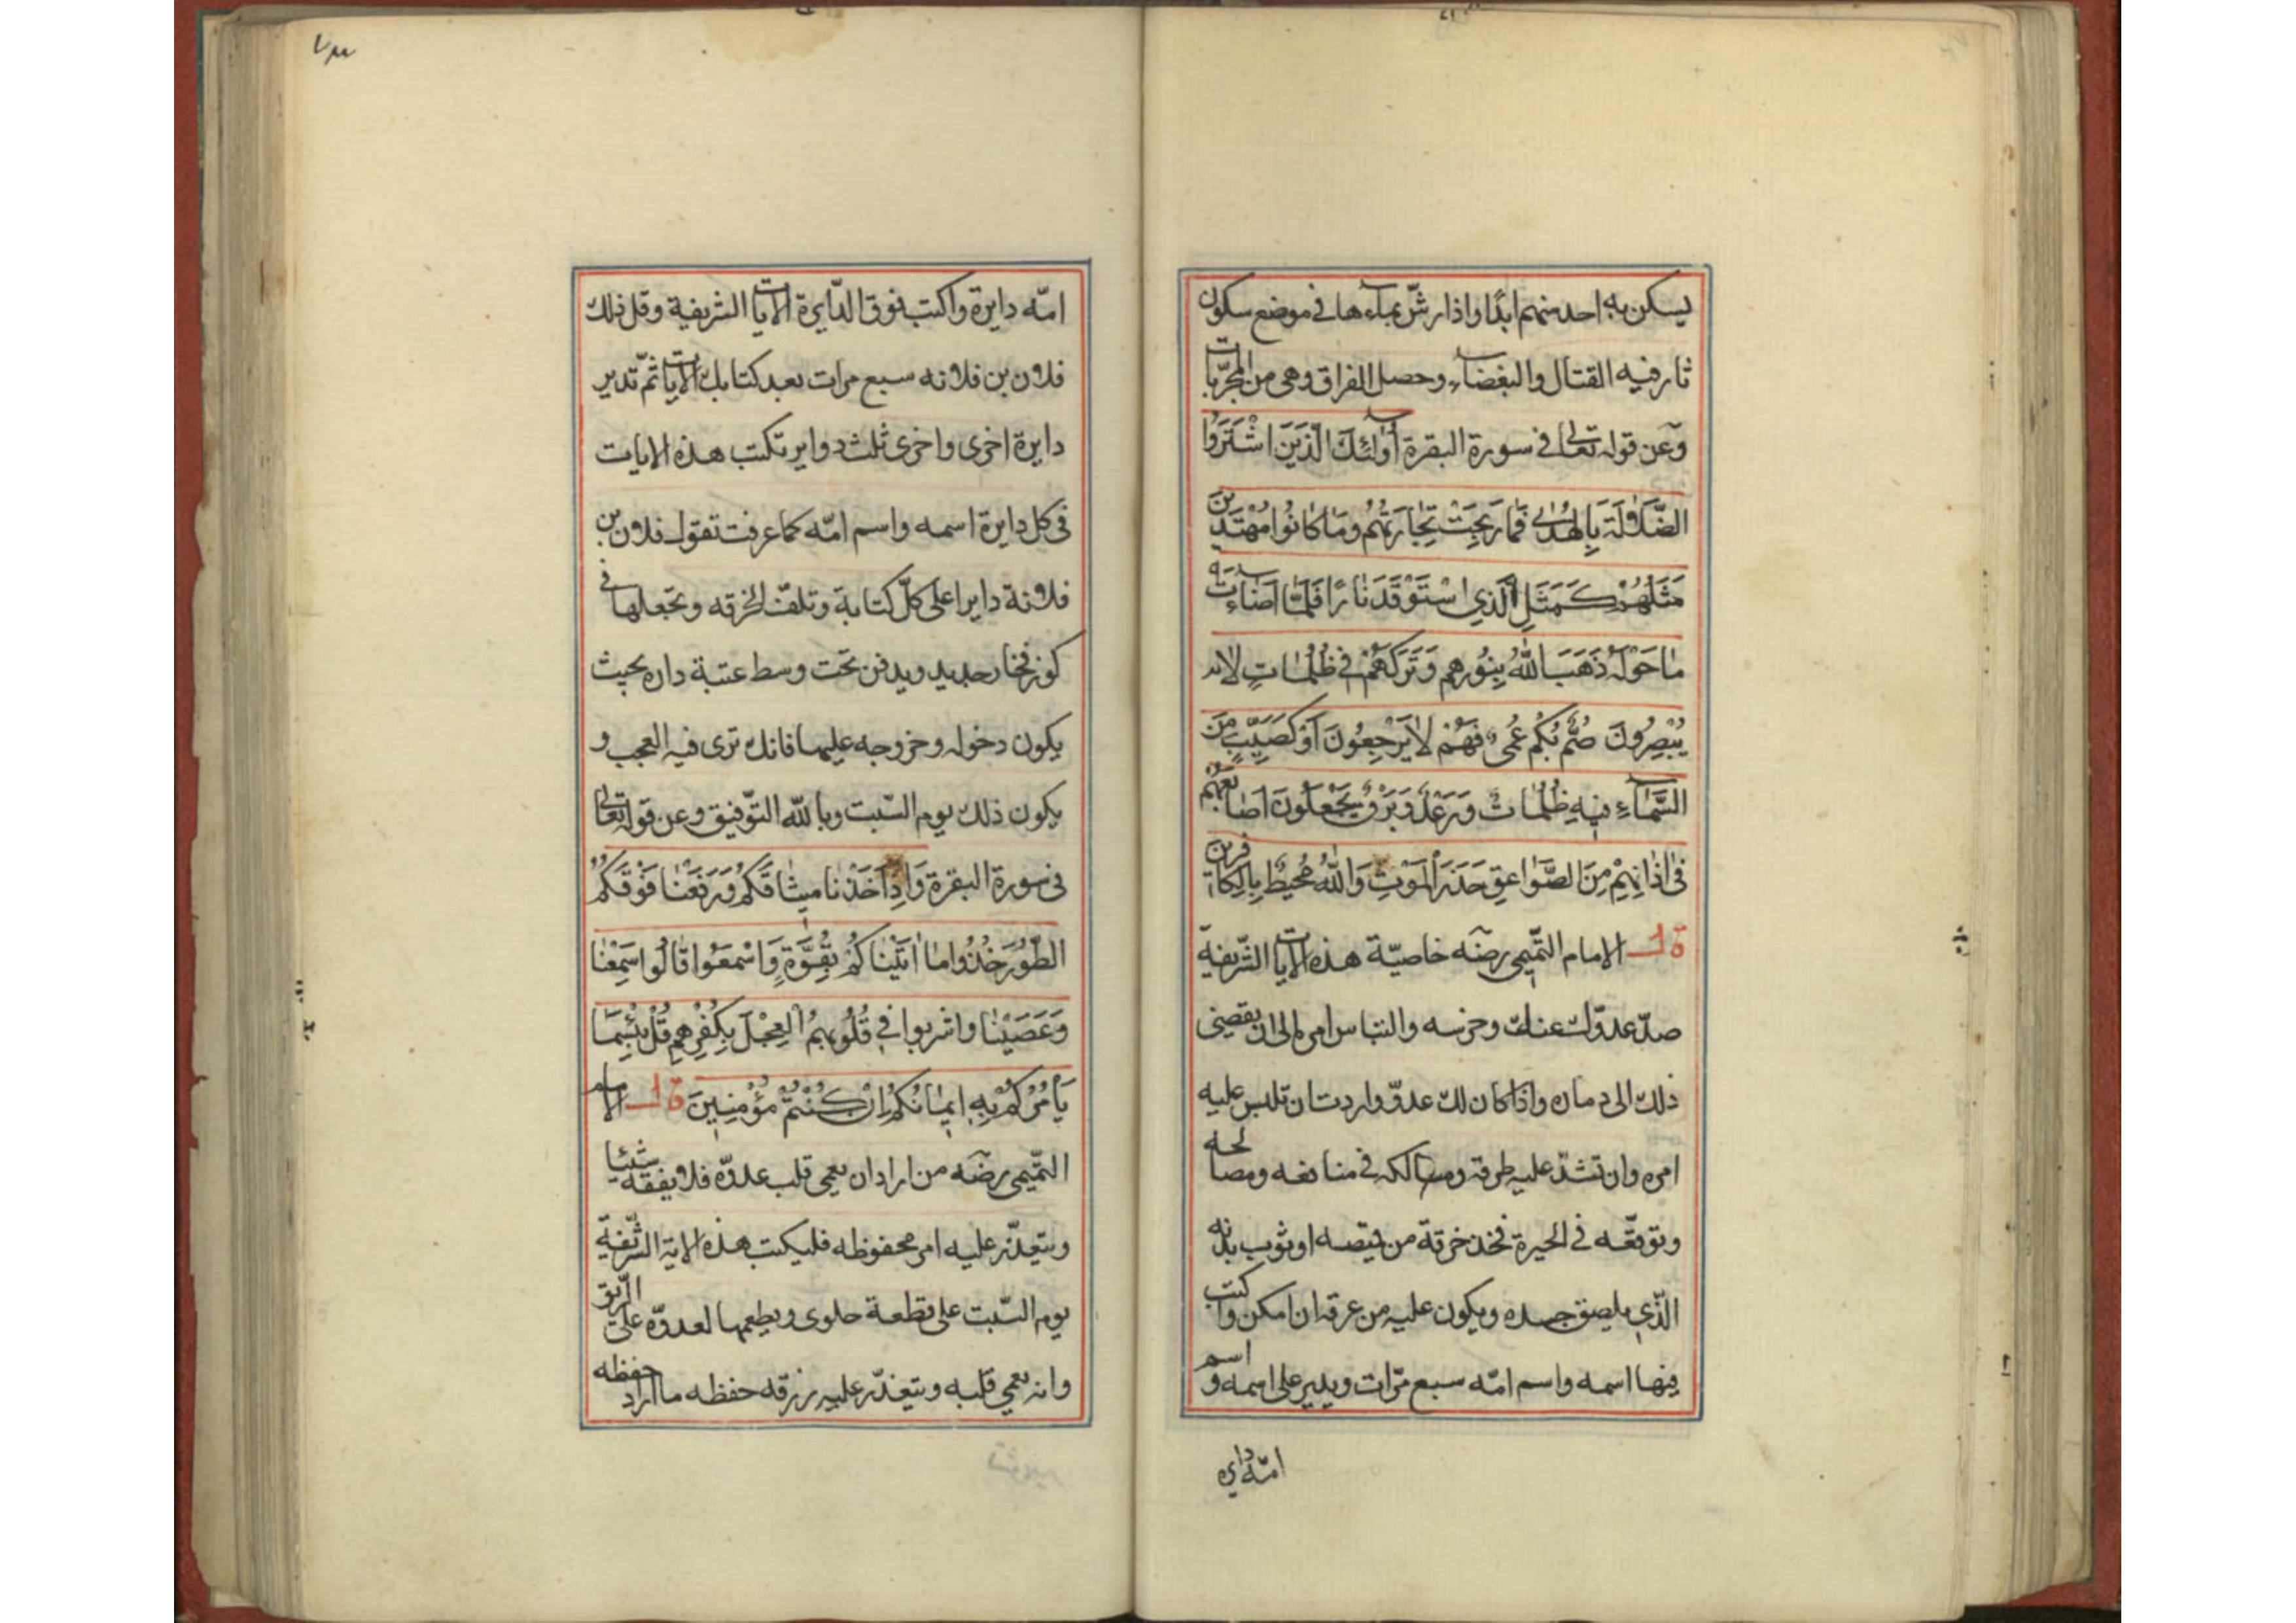 يسكن به احد منهم ابدًا واذا رشّ بماء ها فى موضع سكون
ثار فيه القتال والبغضاء وحصل الفراق وهى من المجرّبات
وعن قوله تعالى فى سورة البقرة أولئك الّذين اشْتَرَوُا
الضَّلَالَةَ بِالهُدٰى فَمَا رَبِحَتْ تِجَارَتُهُمْ وَمَا كَانُوا مُهْتَدِينَ
مَثَلُهُمْ كَمَثَلِ الَّذِي اسْتَوْقَدَ نَارًا فَلَمَّا اَضَاءَتْ
مَا حَوْلَهُ ذَهَبَ اللّٰهُ بِنُورِهِم وَتَرَكَهُمْ فِي ظُلُمَاتٍ لَا
يُبْصِرُونَ صُمٌّ بُكْمٌ عُمْيٌ فَهُمْ لَا يَرْجِعُونَ اَوْ كَصَيِّبٍ مِنَ
السَّمَاءِ فِيهِ ظُلُمَاتٌ وَرَعْدٌ وَبَرْقٌ يَجْعَلُونَ اَصَابِعَهُمْ
فِى اٰذَانِهِمْ مِنَ الصَّوَاعِقِ حَذَرَ الْمَوْتِ وَاللّٰهُ مُحِيطٌ بِالكَافِرِينَ
قال الامام التّميمى رضه خاصيّة هذه الايات الشّريفة
صدّ عدوّك عنك وخرسه والتباس امره الى ان يقضى
ذلك الى دماره واذا كان لك عدوّ واردت ان تلبس عليه
امره وان تشدّ عليه طرقه ومسالكه فى منافعه ومصالحه
وتوقعّه فى الحيرة فخذ خرقة من قميصه او ثوب بدنه
الّذي يلصق جسده ويكون عليه من عرقه ان امكن واكتب
فيها اسمه واسم امّه سبع مرّات ويدير على اسمه واسم
امّه دايره
امّه دايرة واكتب فوق الدّايرة الايات الشريفة وقل ذلك
فلان بن فلانه سبع مرات بعد كتابك الايات ثمّ تدير
دايرة اخرى واخرى ثلث دواير تكتب هذه الايات
فى كل دايرة اسمه واسم امّه كما عرفت تقول فلان بن
فلانة دايرا على كلّ كتابة وتلفّ الخرقه وتجعلها فى
كوز فخار جديد ويدفن تحت وسط عتبة داره بحيث
يكون دخوله وخروجه عليها فانك ترى فيه العجب و
يكون ذلك يوم السّبت وبالله التّوفيق وعن قوله تعالى
فى سورة البقرة وَاِذْ اَخَذْنَا مِيثَاقَكُمْ وَرَفَعْنَا فَوْقَكُمُ
الطُّورَ خُذُوا مَا اٰتَيْنَاكُمْ بِقُوَّةٍ وَاسْمَعُوا قَالُوا سَمِعْنَا
وَعَصَيْنَا واشربوا فِي قُلُوبِهِمُ العِجْلَ بِكُفْرِهِمْ قُلْ بِئْسَمَا
يَأْمُرُكُمْ بِهِ اِيمَانُكُمْ اِنْ كُنْتُمْ مُؤْمِنِينَ قال الامام
التّميمى رضه من اراد ان يعمى قلب عدوّه فلا يفقه شيئا
ويتعذّر عليه امر محفوظه فليكتب هذه الاية الشّريفة
يوم السّبت على قطعة حلوى ويطعمها لعدوّه على الرّيق
وانه يعمي قلبه ويتعذّر عليه رزقه حفظه ما اراد حفظه